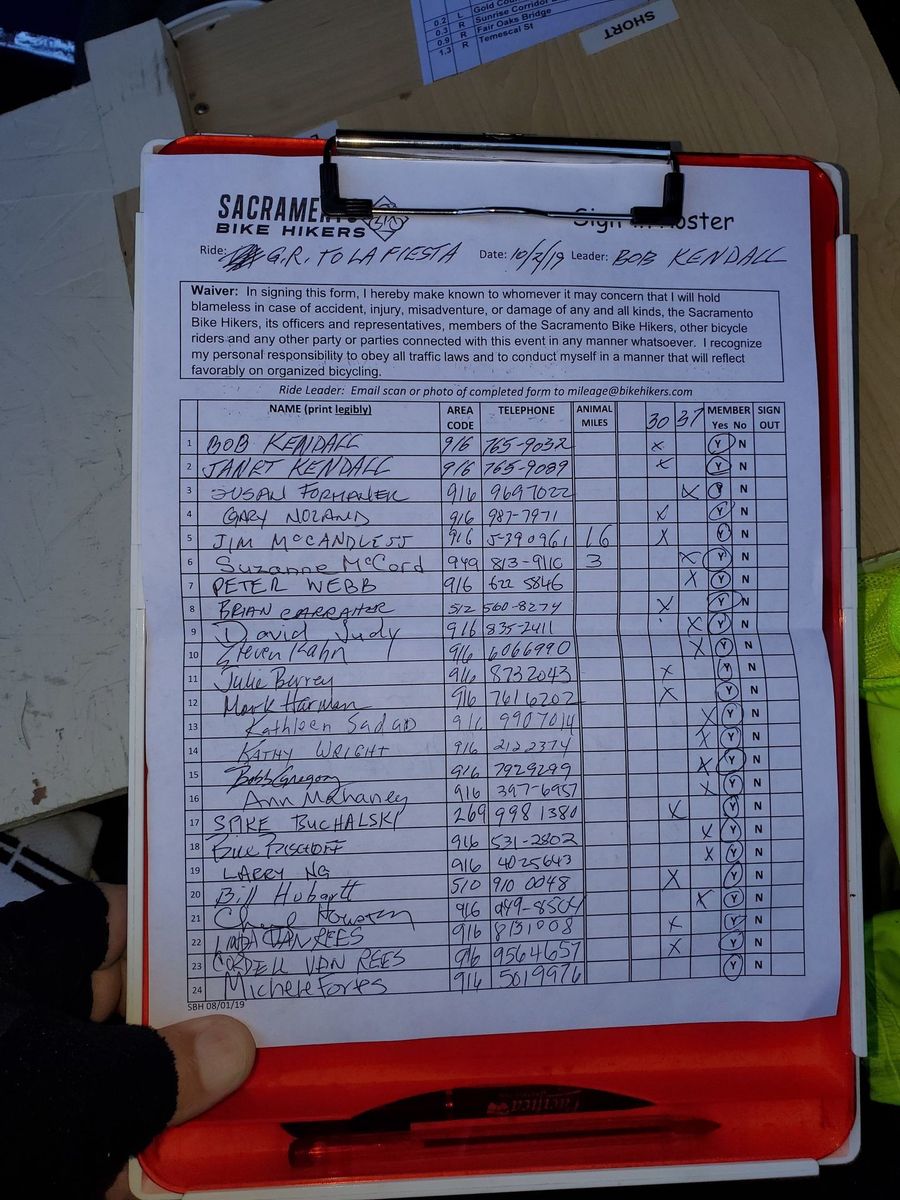 0.2 L Gold Cou
0.3 R Sunrise Corridor
0.9 R Fair Oaks Bridge
1.3 R Temescal St
SHORT
SACRAMEN
BIKE HIKERS
Sign oster
Ride: G.R. TO LA FIESTA Date: 10/2/19 Leader: BOB KENDALL
Waiver: In signing this form, I hereby make known to whomever it may concern that I will hold
blameless in case of accident, injury, misadventure, or damage of any and all kinds, the Sacramento
Bike Hikers, its officers and representatives, members of the Sacramento Bike Hikers, other bicycle
riders and any other party or parties connected with this event in any manner whatsoever. I recognize
my personal responsibility to obey all traffic laws and to conduct myself in a manner that will reflect
favorably on organized bicycling.
Ride Leader: Email scan or photo of completed form to mileage@bikehikers.com
NAME (print legibly) AREA CODE TELEPHONE ANIMAL MILES 30 37 MEMBER Yes No SIGN OUT
1 BOB KENDALL 916 765-9032 X Y N
2 JANET KENDALL 916 765-9089 X Y N
3 SUSAN FORMANEK 916 9697022 X Y N
4 GARY NOLAND 916 987-7971 X Y N
5 JIM McCANDLESS 916 5390961 16 X Y N
6 Suzanne McCord 949 813-9110 3 X Y N
7 PETER WEBB 916 622 5846 X Y N
8 BRIAN CARRAHER 512 560-8274 X Y N
9 David Judy 916 835-2411 X Y N
10 Steven Kahn 916 6066990 X Y N
11 Julie Berrey 916 8732043 X Y N
12 Mark Harman 916 7616202 X Y N
13 Kathleen 916 9907014 X Y N
14 KATHY WRIGHT 916 2122374 X Y N
15 Bobb Gregory 916 7929299 X Y N
16 Ann Mahaney 916 397-6957 X Y N
17 SPIKE BUCHALSKI 269 998 1380 X Y N
18 BILL BISCHOFF 916 531-2802 X Y N
19 LARRY NG 916 4025643 X Y N
20 Bill Hobartt 510 910 0048 X Y N
21 Cheryl 916 949-8504 X Y N
22 LINDA VAN REES 916 8131008 X Y N
23 CORDELL VAN REES 916 9564657 X Y N
24 Michele Fortes 916 5019976 Y N
SBH 08/01/19
Pacifica